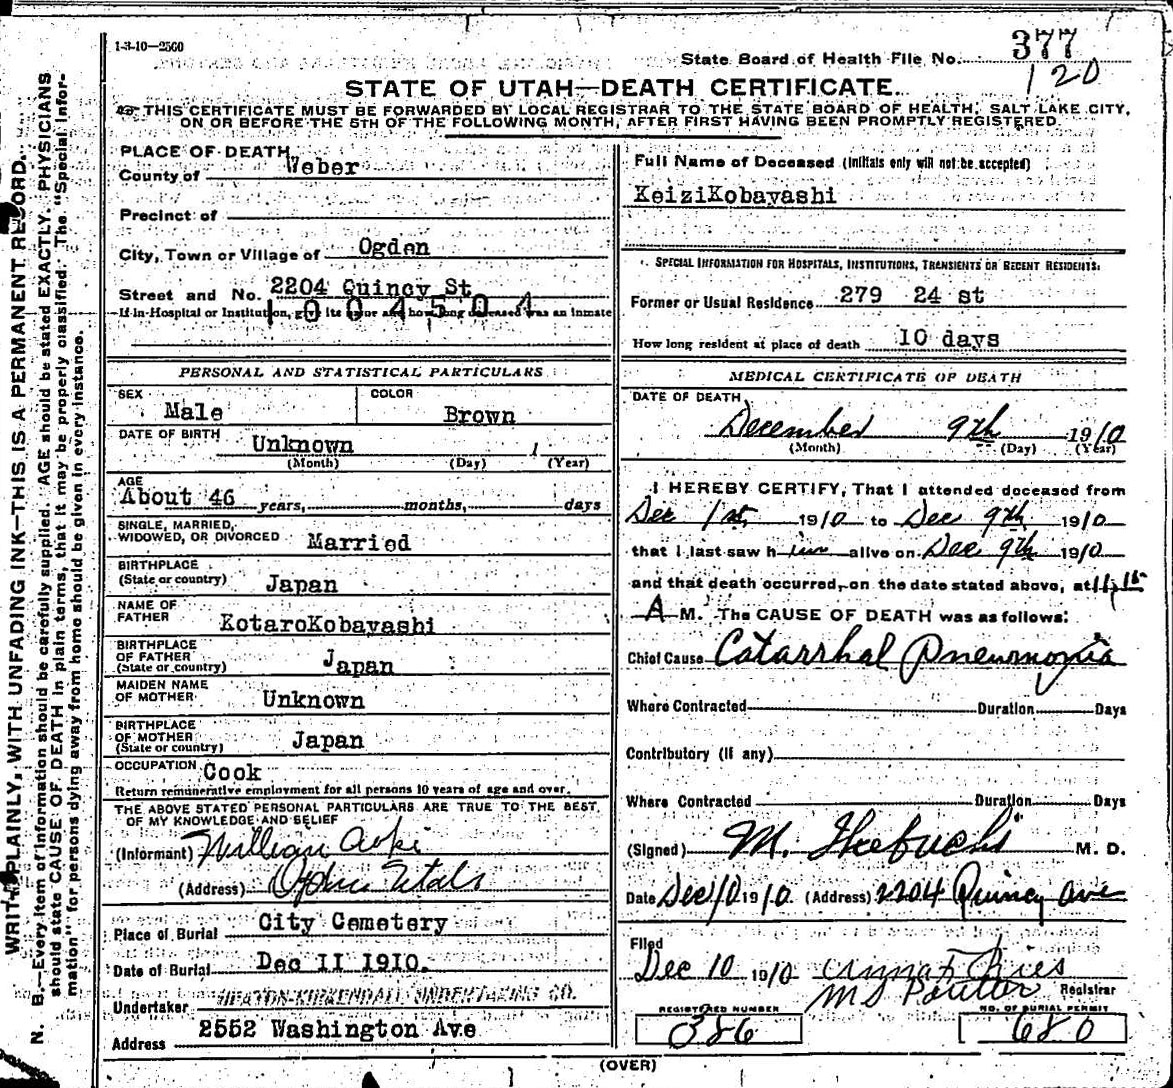 1-3-10—2560
State Board of Health File No. 377
120
STATE OF UTAH—DEATH CERTIFICATE.
THIS CERTIFICATE MUST BE FORWARDED BY LOCAL REGISTRAR TO THE STATE BOARD OF HEALTH, SALT LAKE CITY,
ON OR BEFORE THE 5TH OF THE FOLLOWING MONTH, AFTER FIRST HAVING BEEN PROMPTLY REGISTERED.
WRITE PLAINLY, WITH UNFADING INK—THIS IS A PERMANENT RECORD.
N. B.—Every item of information should be carefully supplied. AGE should be stated EXACTLY. PHYSICIANS
should state CAUSE OF DEATH in plain terms, that it may be properly classified. The "Special Infor-
mation" for persons dying away from home should be given in every instance.
PLACE OF DEATH
County of Weber
Precinct of
City, Town or Village of Ogden
Street and No. 2204 Quincy St
If in Hospital or Institution, give its and how long deceased was an inmate
1004504
PERSONAL AND STATISTICAL PARTICULARS
SEX Male
COLOR Brown
DATE OF BIRTH Unknown
(Month) (Day) (Year)
AGE
About 46 years, months, days
SINGLE, MARRIED,
WIDOWED, OR DIVORCED Married
BIRTHPLACE
(State or country) Japan
NAME OF
FATHER KotaroKobayashi
BIRTHPLACE
OF FATHER
(State or country) Japan
MAIDEN NAME
OF MOTHER Unknown
BIRTHPLACE
OF MOTHER
(State or country) Japan
OCCUPATION Cook
Return remunerative employment for all persons 10 years of age and over.
THE ABOVE STATED PERSONAL PARTICULARS ARE TRUE TO THE BEST
OF MY KNOWLEDGE AND BELIEF
(Informant) William Aoki
(Address) Ogden Utah
Place of Burial City Cemetery
Date of Burial Dec 11 1910.
Undertaker HEATON-KIRKENDALL UNDERTAKING CO.
Address 2552 Washington Ave
Full Name of Deceased (Initials only will not be accepted)
KeiziKobayashi
SPECIAL INFORMATION FOR HOSPITALS, INSTITUTIONS, TRANSIENTS OR RECENT RESIDENTS:
Former or Usual Residence 279 24 st
How long resident at place of death 10 days
MEDICAL CERTIFICATE OF DEATH
DATE OF DEATH
December 9th 1910
(Month) (Day) (Year)
I HEREBY CERTIFY, That I attended deceased from
Dec 1st, 1910 to Dec 9th 1910
that I last saw him alive on Dec 9th 1910
and that death occurred, on the date stated above, at 11,15
A M. The CAUSE OF DEATH was as follows:
Chief Cause Catarrhal Pneumonia
Where Contracted Duration Days
Contributory (if any)
Where Contracted Duration Days
(Signed) M. Ikebuchi M. D.
Date Dec 10 1910. (Address) 2204 Quincy Ave
Filed
Dec 10 1910
Registrar
REGISTERED NUMBER
386
NO. OF BURIAL PERMIT
680
(OVER)